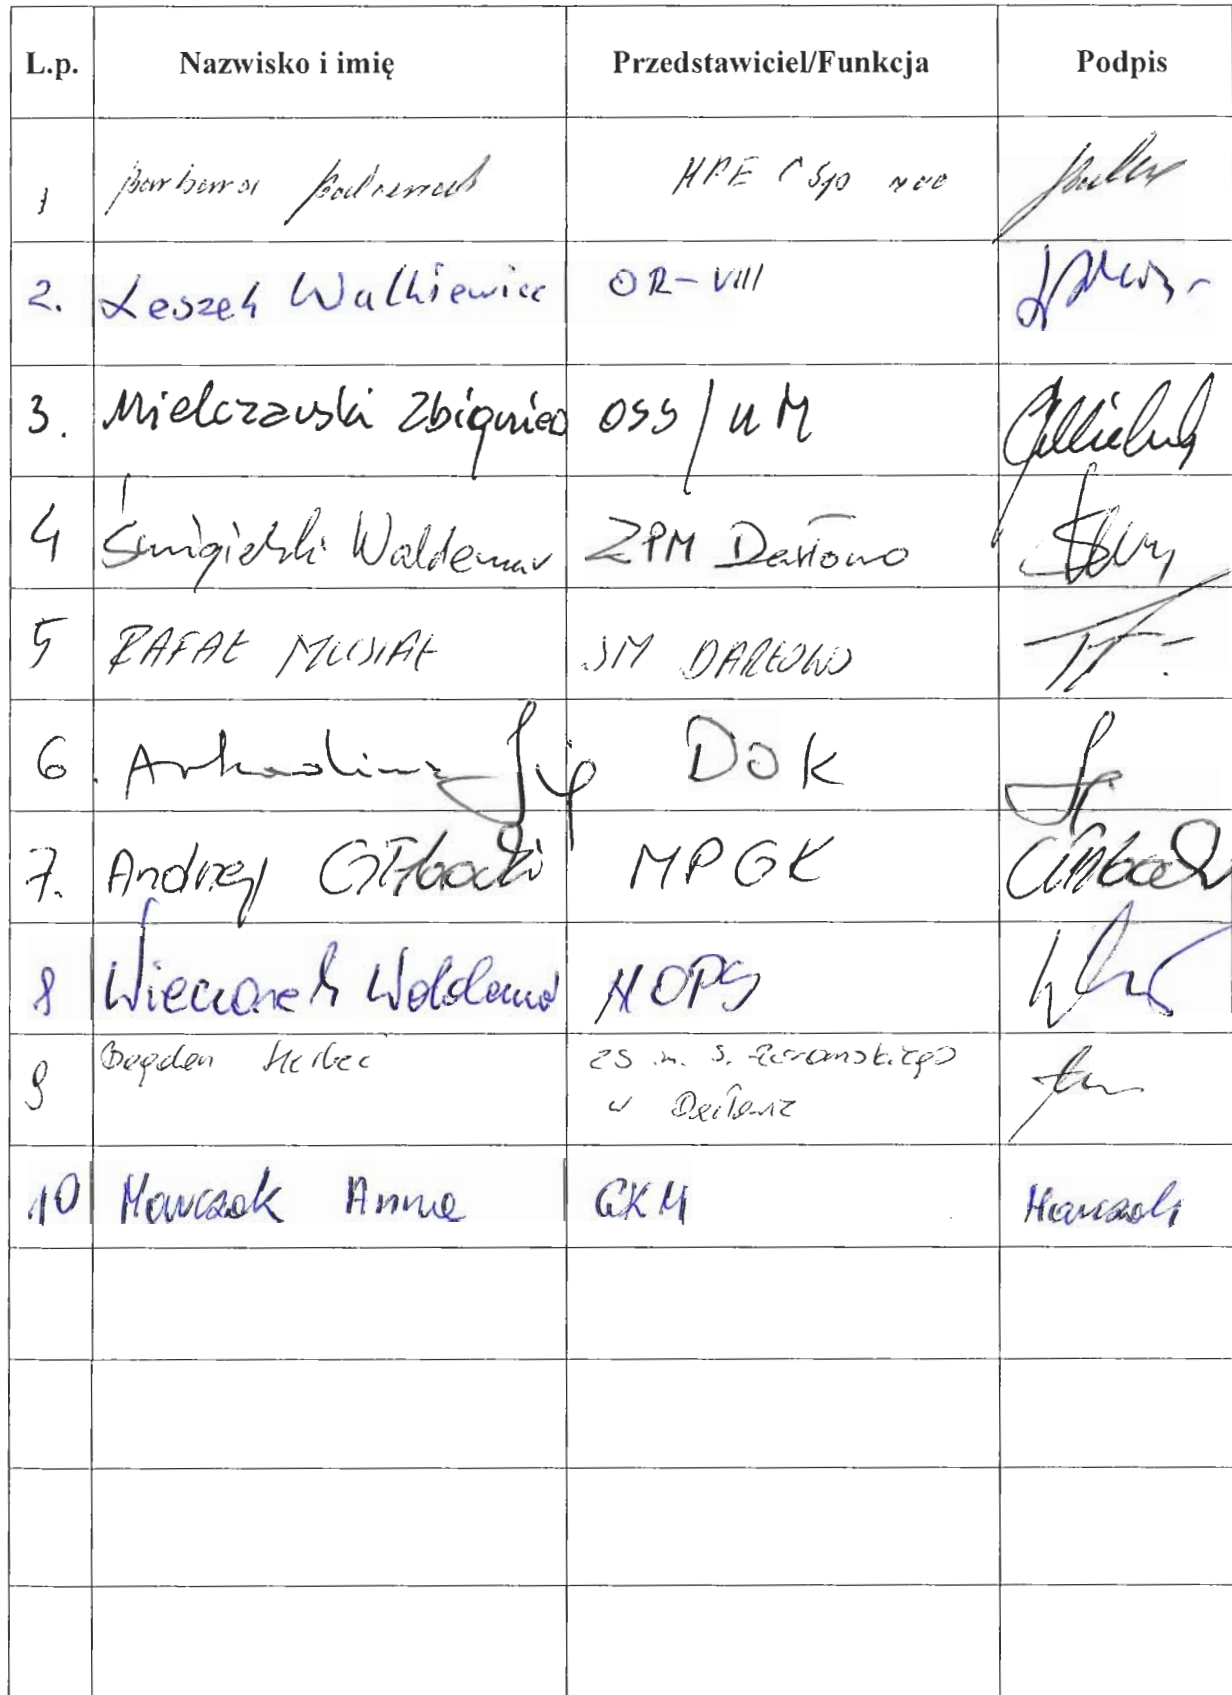 L.p. Nazwisko i imię Przedstawiciel/Funkcja Podpis
1 Barbara MPEC Sp. zoo
2. Leszek Walkiewicz OR-VIII
3. Mielczarski Zbigniew OSS/UM
4 Śmigielski Waldemar ZPM Darłowo
5 RAFAŁ MUSIAŁ SM DARŁOWO
6. Arkadiusz Sip DOK
7. Andrzej MPGK
8 Wieczorek Waldemar MOPS
9 Bogdan ZS im. S. Żeromskiego
w Darłowie
10 Marczak Anna GKM Marczak